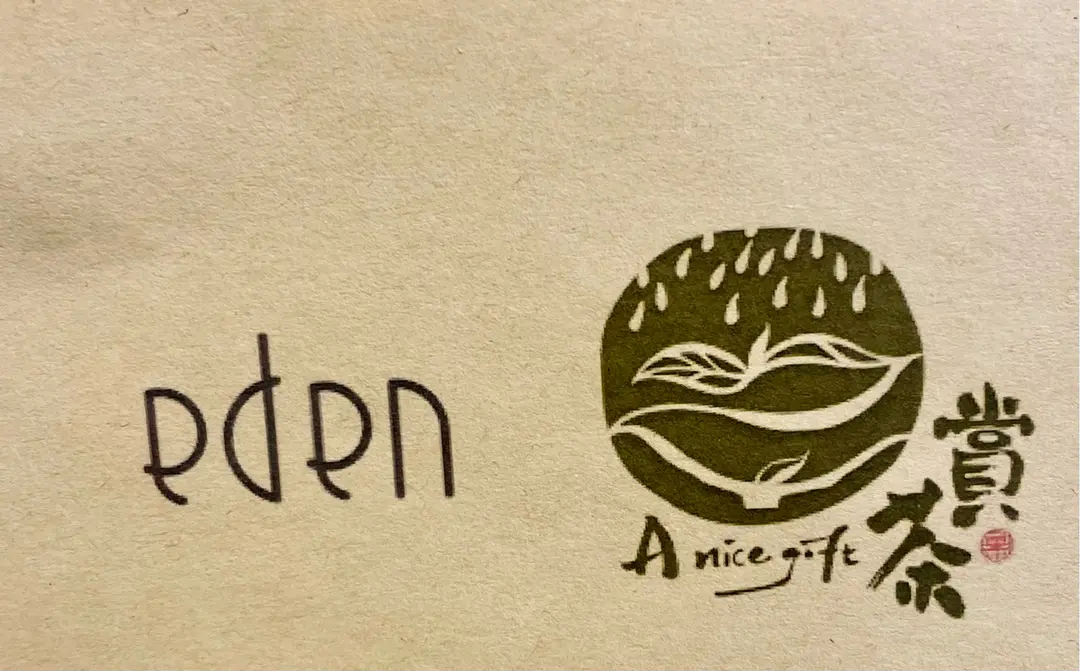 eden
A nice gift
賞茶